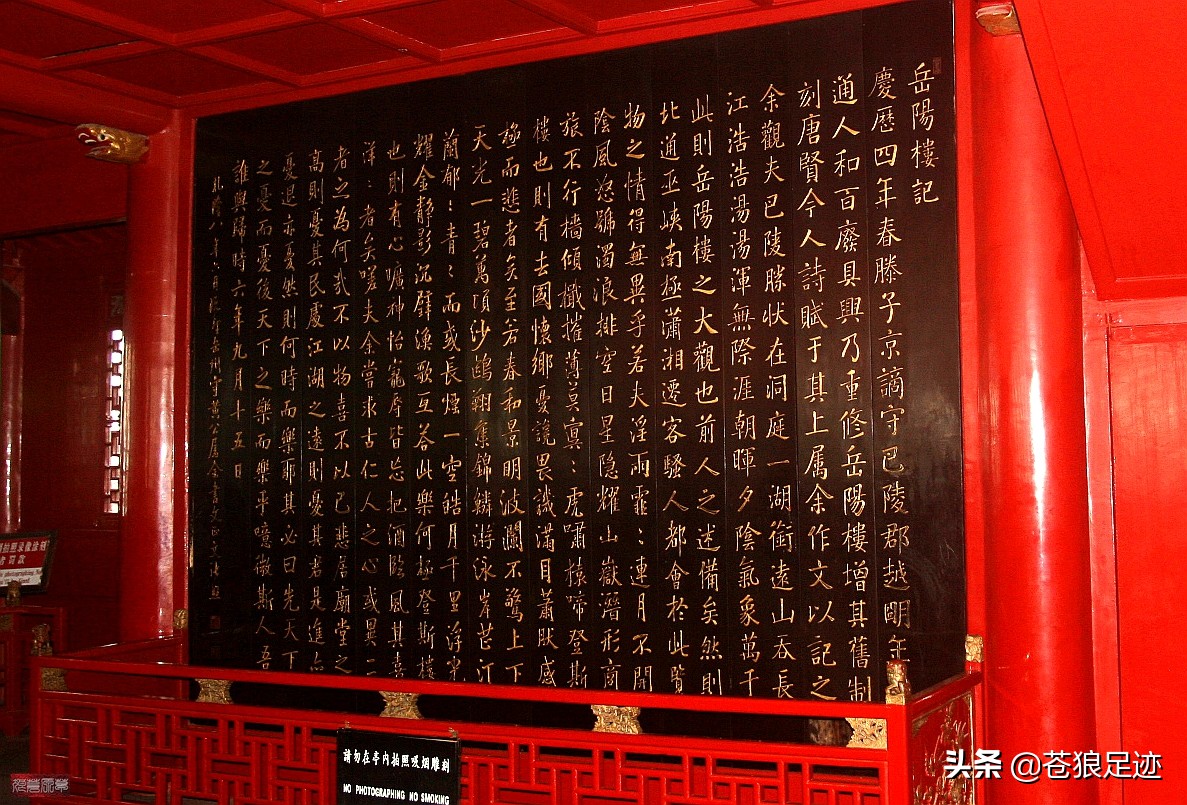 岳陽樓記
慶歷四年春滕子京謫守巴陵郡越明年
通人和百廢具興乃重修岳陽樓增其舊制
刻唐賢今人詩賦于其上属余作文以記之
余觀夫巴陵勝状在洞庭一湖銜遠山吞長
江浩浩湯湯渾無際涯朝暉夕陰氣象萬千
此則岳陽樓之大觀也前人之述備矣然則
北通巫峽南極瀟湘遷客騷人都會於此覧
物之情得無異乎若夫淫雨霏〻連月不開
陰風怒號濁浪排空日星隐耀山嶽潛形商
旅不行檣傾檝摧薄莫冥〻虎嘯猿啼登斯
樓也則有去國懷鄉憂讒畏譏滿目蕭肰感
極而悲者矣至若春和景明波瀾不驚上下
天光一碧萬頃沙鷗翔集錦鱗游泳岸芷汀
蘭郁〻青〻而或長煙一空皓月千里浮光
耀金静影沉璧漁歌互荅此樂何極登斯樓
也則有心曠神怡寵辱皆忘把酒臨風其喜
洋〻者矣嗟夫余嘗求古仁人之心或異二
者之為何哉不以物喜不以己悲居廟堂之
高則憂其民處江湖之遠則憂其君是進亦
憂退亦憂然則何時而樂耶其必曰先天下
之憂而憂後天下之樂而樂乎噫微斯人吾
誰與歸時六年九月十五日
乾隆八年六月
請勿在亭内拍照吸烟雕刻
NO PHOTOGRAPHING NO SMOKING
头条 @苍狼足迹